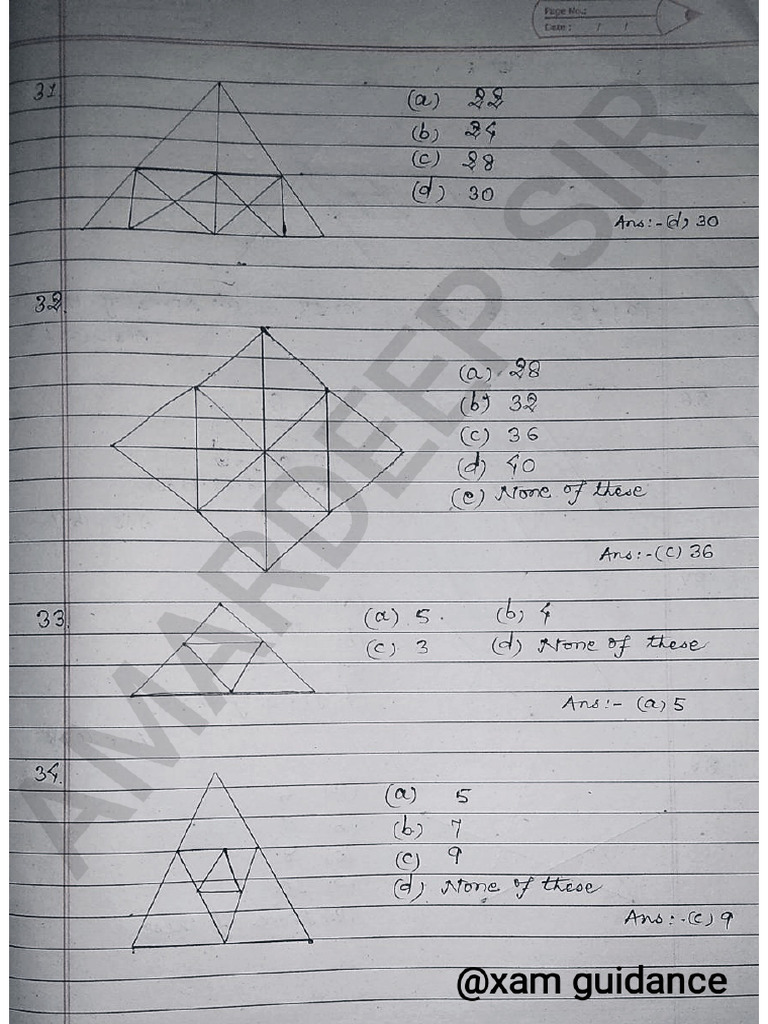 Page No.:
Date: / /
31.
(a) 22
(b) 24
(c) 28
(d) 30
Ans:-(d) 30
32.
(a) 28
(b) 32
(c) 36
(d) 40
(e) None of these
Ans:-(c) 36
33.
(a) 5. (b) 4
(c) 3 (d) None of these
Ans:- (a) 5
34.
(a) 5
(b) 7
(c) 9
(d) None of these
Ans:-(c) 9
AMARDEEP SIR
@xam guidance